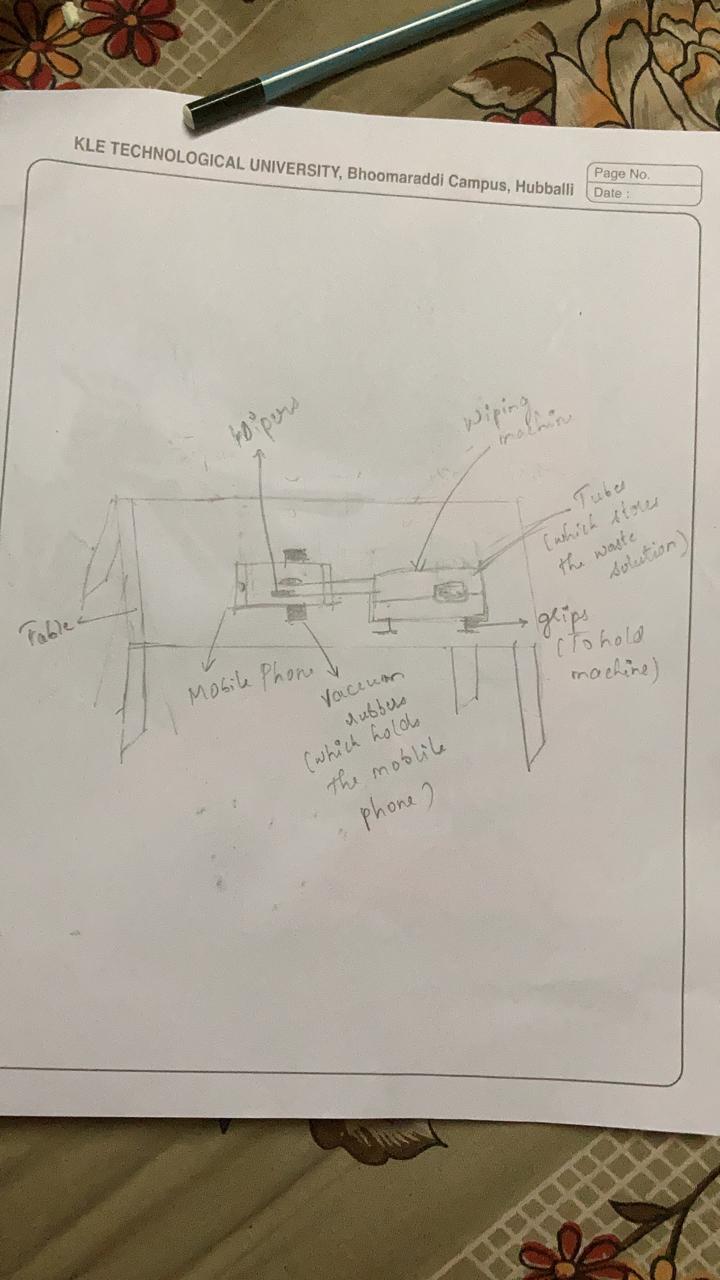 KLE TECHNOLOGICAL UNIVERSITY, Bhoomaraddi Campus, Hubballi
Page No.
Date :
Wipers
Wiping
machine
Tubes
(which stores
the waste
solution)
Table
grips
(To hold
machine)
Mobile Phone
Vaccum
rubbers
(which holds
the moblile
phone)